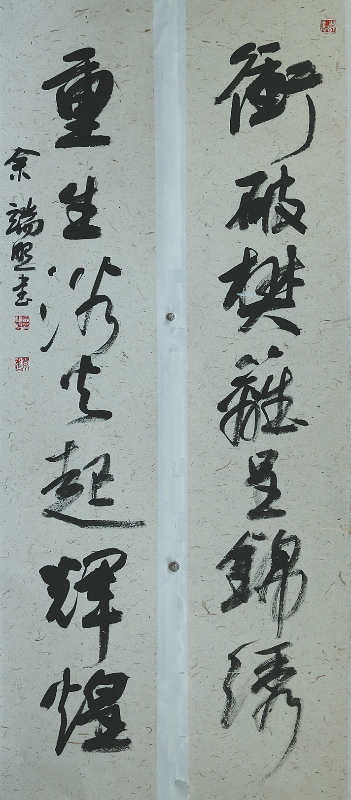 衝破樊籬呈錦綉
重生浴火起輝煌
余端照書